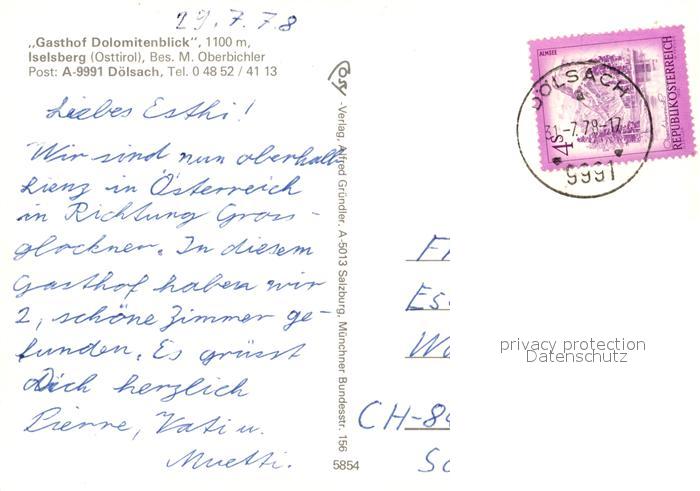 29.7.78
„Gasthof Dolomitenblick", 1100 m,
Iselsberg (Osttirol), Bes. M. Oberbichler
Post: A-9991 Dölsach, Tel. 0 48 52 / 41 13
Liebes Esthi!
Wir sind nun oberhalb
Lienz in Österreich
in Richtung Gross-
glockner. In diesem
Gasthof haben wir
2, schöne Zimmer ge-
funden. Es grüsst
Dich herzlich
Pierre, Vati u.
Muetti.
-Verlag, Alfred Gründler, A-5013 Salzburg, Münchner Bundesstr. 156
5854
ALMSEE
4s
REPUBLIK ÖSTERREICH
DÖLSACH
31.-7.78-17
9991
F
Es
W
CH-84
Sc
privacy protection
Datenschutz